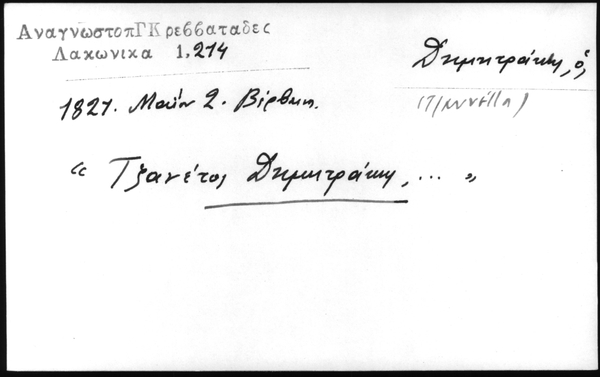 ΑναγνωστοπΓΚρεββαταδες
Λακωνικα 1,214
Δημητράκης, ὁ,
1821. Μαΐου 2. Βέρβενα.
" Τζανέτος Δημητράκης, ... "